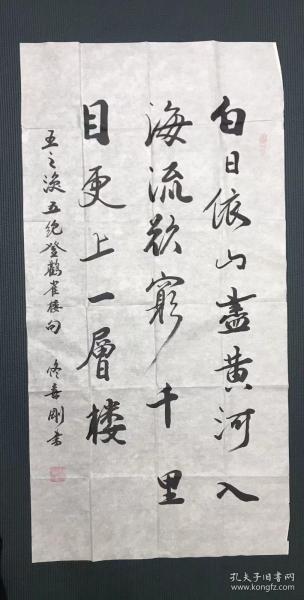 白日依山盡黄河入
海流欲窮千里
目更上一層楼
王之涣五绝登鹳雀楼句 佟喜刚书
孔夫子旧书网
www.kongfz.com